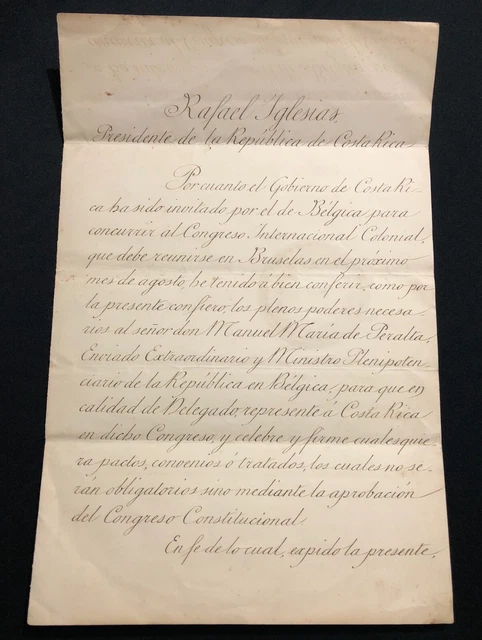 Rafael Iglesias,
Presidente de la República de Costa Rica
Por cuanto el Gobierno de Costa Ri-
ca ha sido invitado por el de Bélgica para
concurrir al Congreso Internacional Colonial,
que debe reunirse en Bruselas en el próximo
mes de agosto, he tenido á bien conferir, como por
la presente confiero, los plenos poderes necesa-
rios al señor don Manuel María de Peralta,
Enviado Extraordinario y Ministro Plenipoten-
ciario de la República en Bélgica, para que en
calidad de Delegado, represente á Costa Rica
en dicho Congreso, y celebre y firme cualesquie-
ra pactos, convenios ó tratados, los cuales no se-
rán obligatorios sino mediante la aprobación
del Congreso Constitucional.
En fe de lo cual, expido la presente,